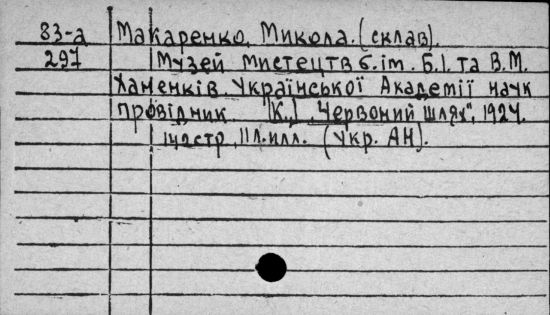 83-а Макаренко, Микола. (склав).
297 Музей мистецтв б. ім. Б.І. та В.М.
Ханенків Української Академії наук
провідник [К.], „Червоний шлях", 1924.
142стр, 11 л.илл. (Укр. АН).